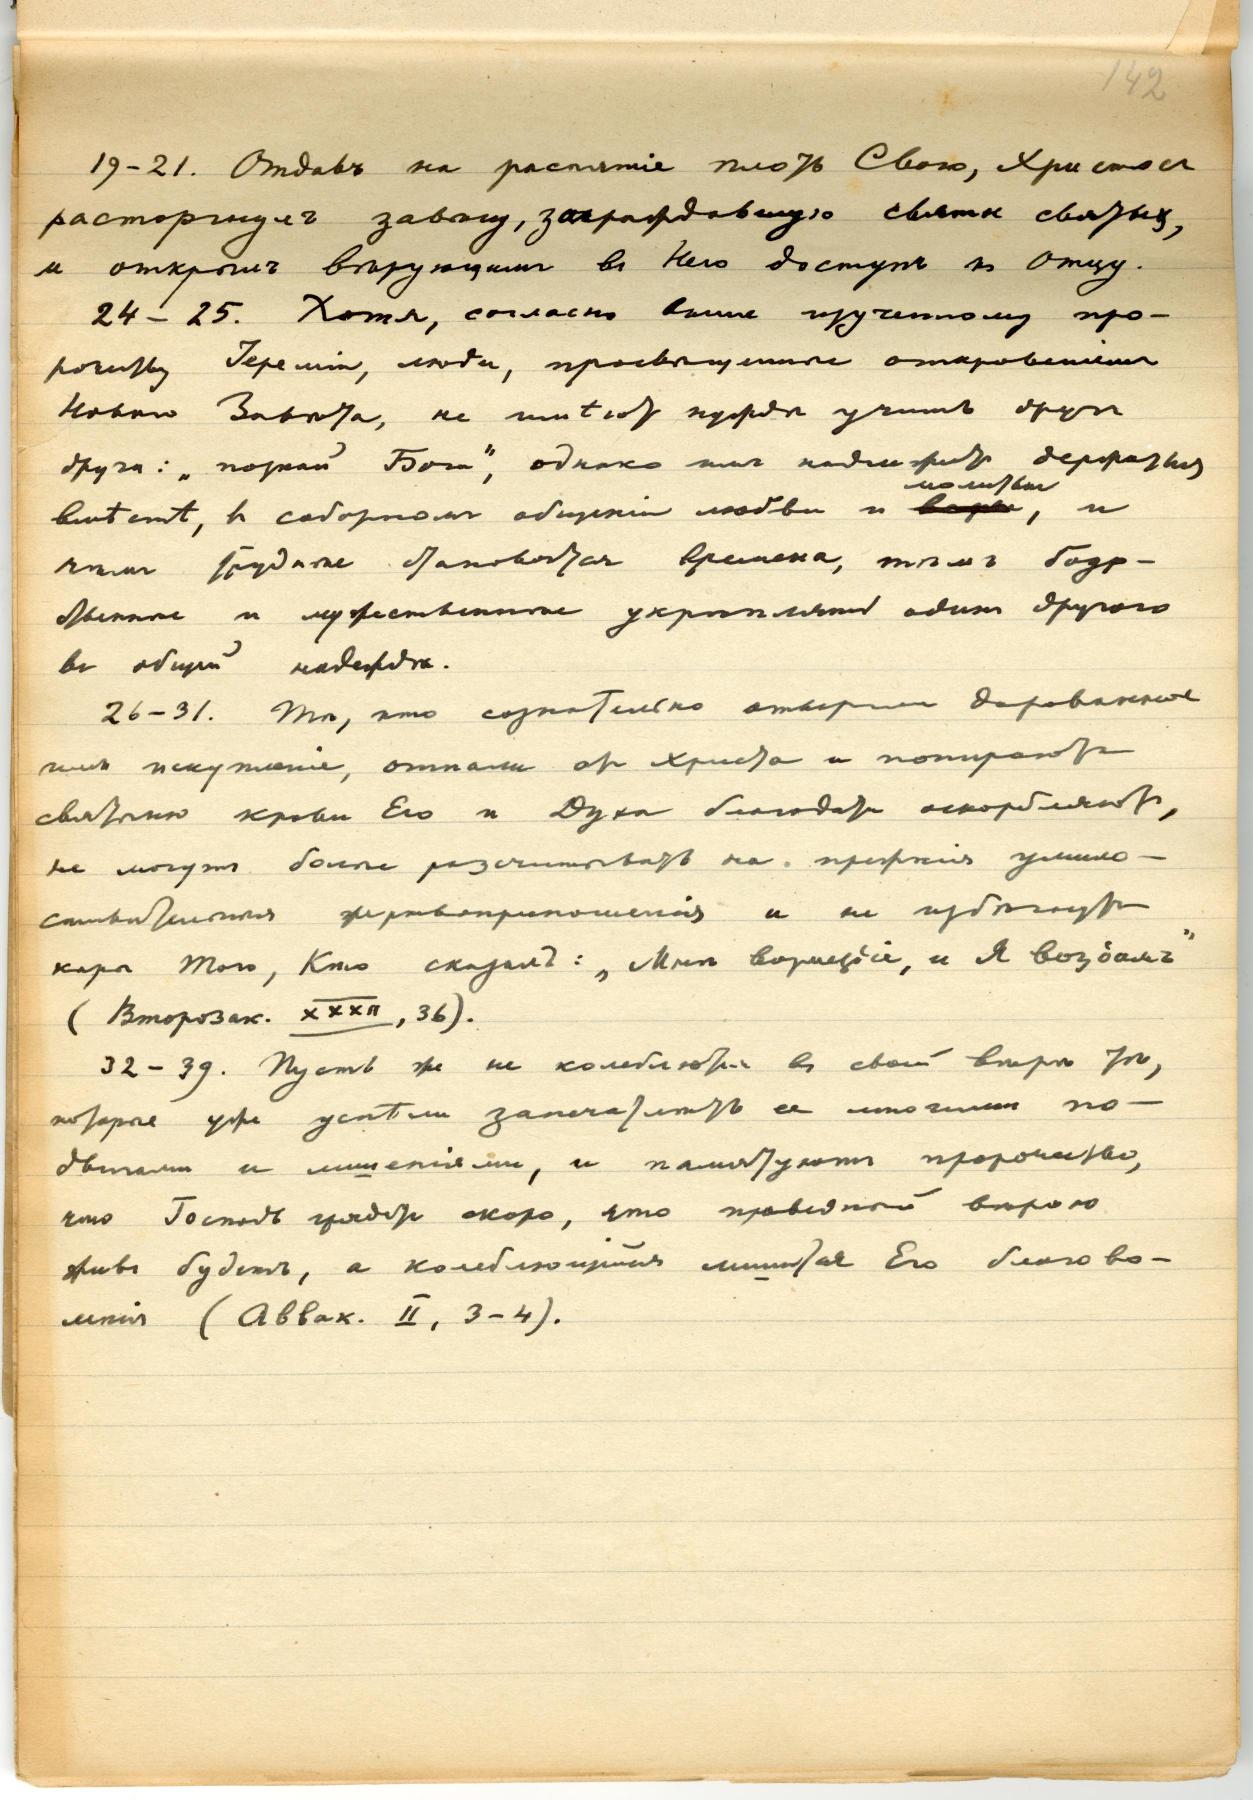 142
19–21. Отдавъ на распятіе плоть Свою, Христосъ
расторгнулъ завѣсу, заграждавшую святая святыхъ,
и открылъ вѣрующимъ въ Него доступъ къ Отцу.
24–25. Хотя, согласно выше изученному про-
рочеству Іереміи, люди, просвѣщенные откровеніемъ
Новаго Завѣта, не имѣютъ нужды учить другъ
друга: „познай Бога“, однако имъ надлежитъ держаться
вмѣстѣ, въ соборномъ общеніи любви и молитвы, и
чѣмъ труднѣе становятся времена, тѣмъ бодр-
ственнѣе и мужественнѣе укрѣпляти одинъ другого
въ общей надеждѣ.
26–31. Тѣ, кто сознательно отвергли дарованное
имъ искупленіе, отпали отъ Христа и попираютъ
святыню крови Его и Духа благодати оскорбляютъ,
не могутъ болѣе разсчитывать на прежнія умило-
стивительныя жертвоприношенія и не избѣгнутъ
кары Того, Кто сказалъ: „Мнѣ возмездіе, и Я воздамъ“
(Второзак. XXXII, 36).
32–39. Пусть же не колеблются въ своей вѣрѣ тѣ,
которые уже успѣли запечатлѣть ее многими по-
двигами и лишеніями, и памятуютъ пророчество,
что Господь грядетъ скоро, что праведный вѣрою
живъ будетъ, а колеблющійся лишится Его благово-
ленія (Аввак. II, 3–4).